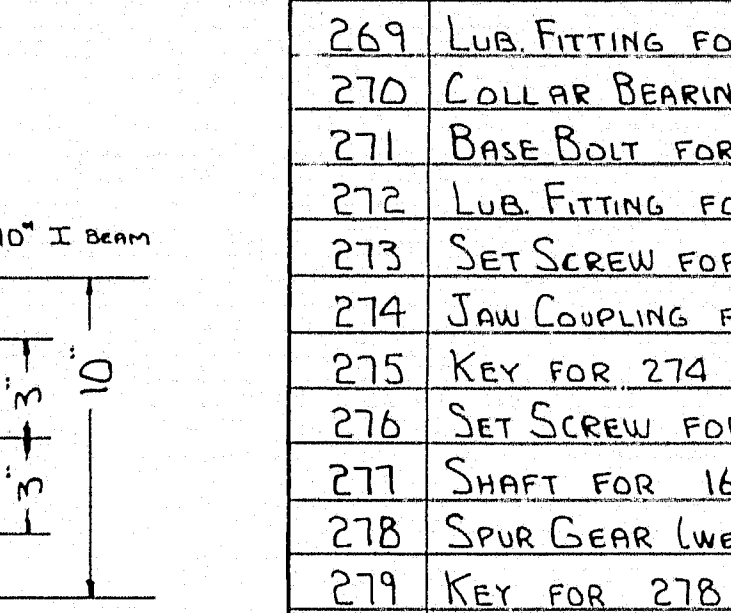 10" I BEAM
10"
3"
3"
269 LUB. FITTING
270 COLLAR
271 BASE BOLT FOR
272 LUB. FITTING
273 SET SCREW FOR
274 JAW COUPLING
275 KEY FOR 274
276 SET SCREW
277 SHAFT FOR 16
278 SPUR GEAR
279 KEY FOR 278